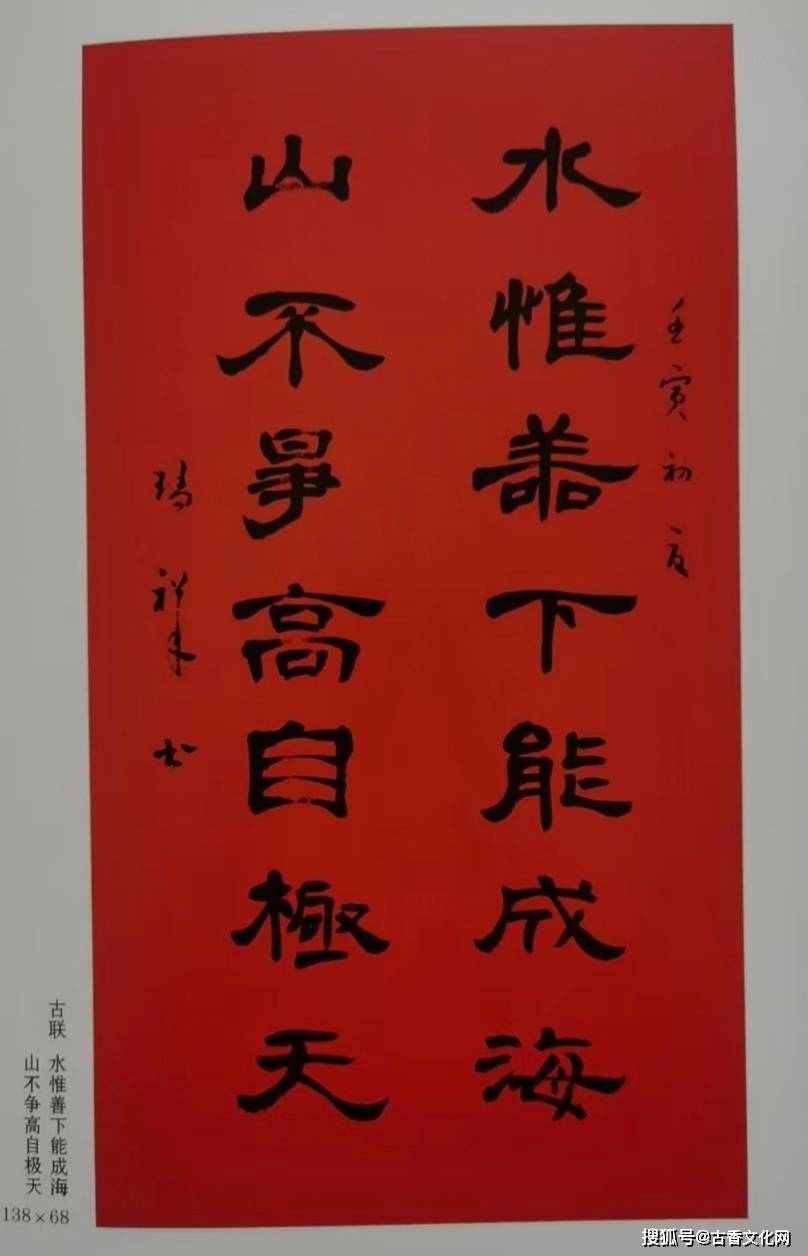 壬寅初夏
水惟善下能成海
山不爭高自極天
瑞祥书
古联 水惟善下能成海
山不争高自极天
138×68
搜狐号@古香文化网